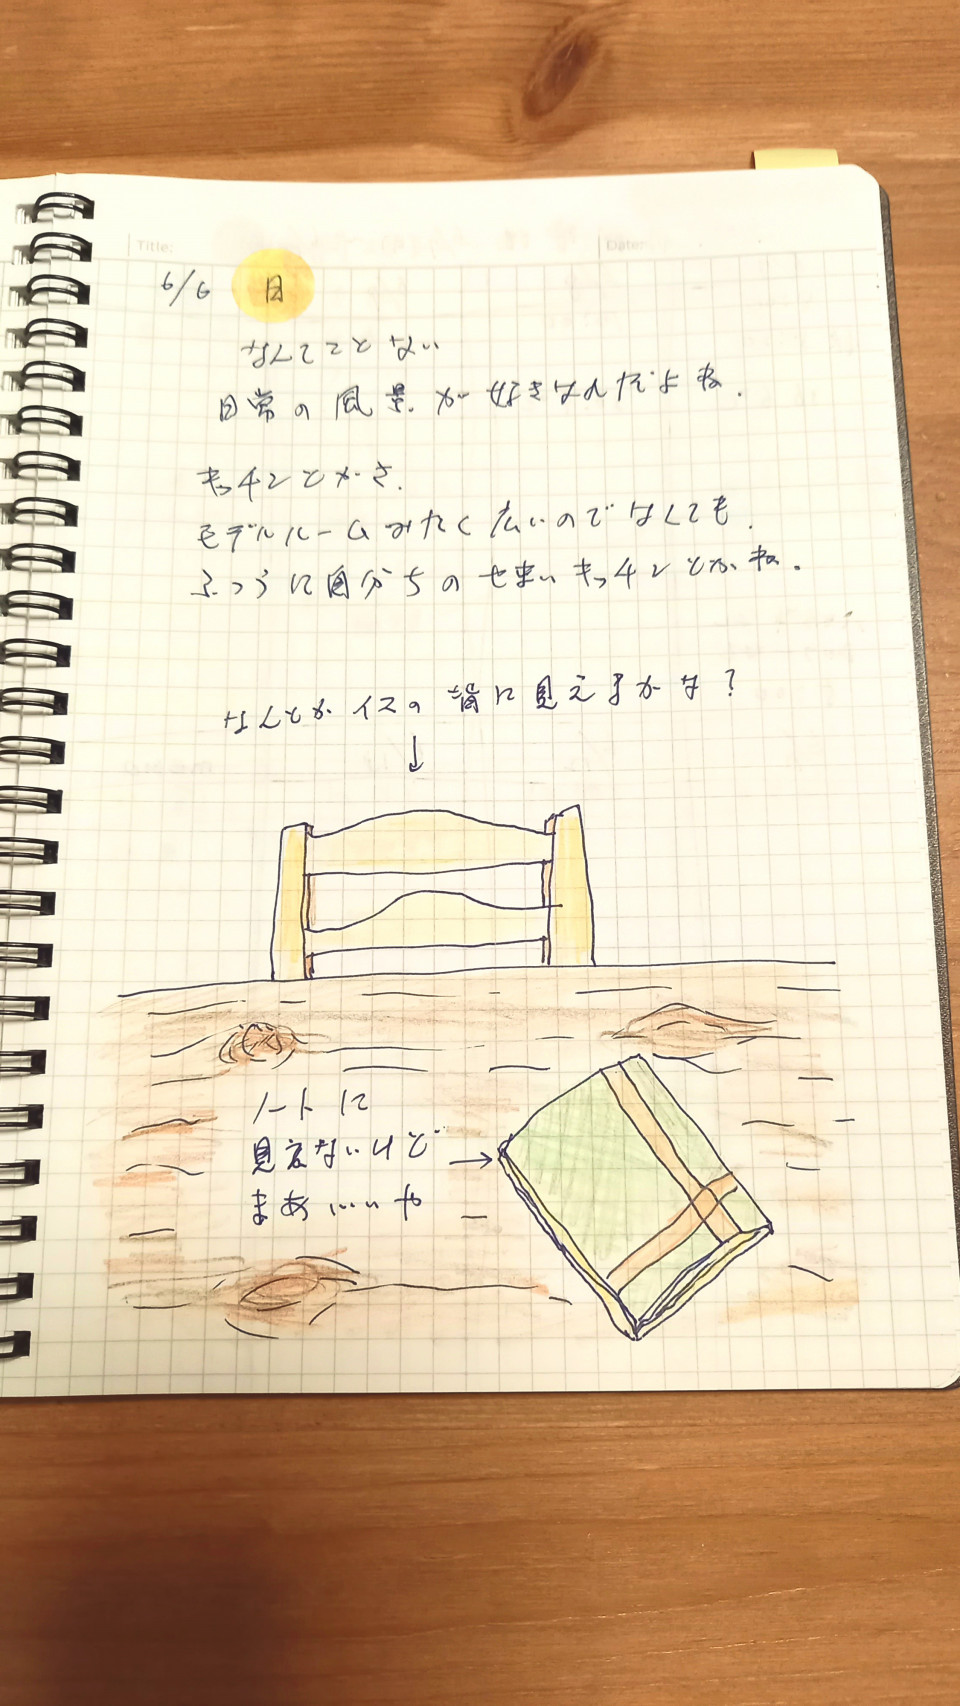 Title:
Date:
6/6 日
なんてことない
日常の風景が好きなんだよね.
キッチンとかさ.
モデルルームみたく広いのでなくても.
ふつうに自分ちのせまいキッチンとかね.
なんとかイスの背に見えるかな?
ノートに
見えないけど
まあいいや